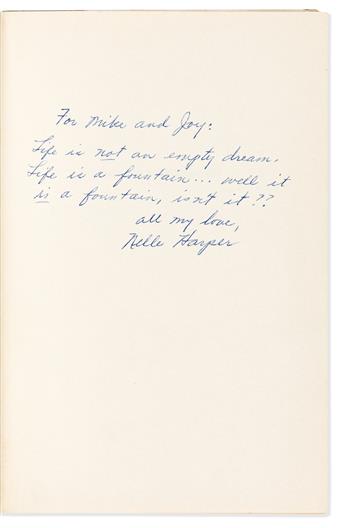 For Mike and Joy:
Life is not an empty dream.
Life is a fountain... well it
is a fountain, isn't it??
all my love,
Nelle Harper